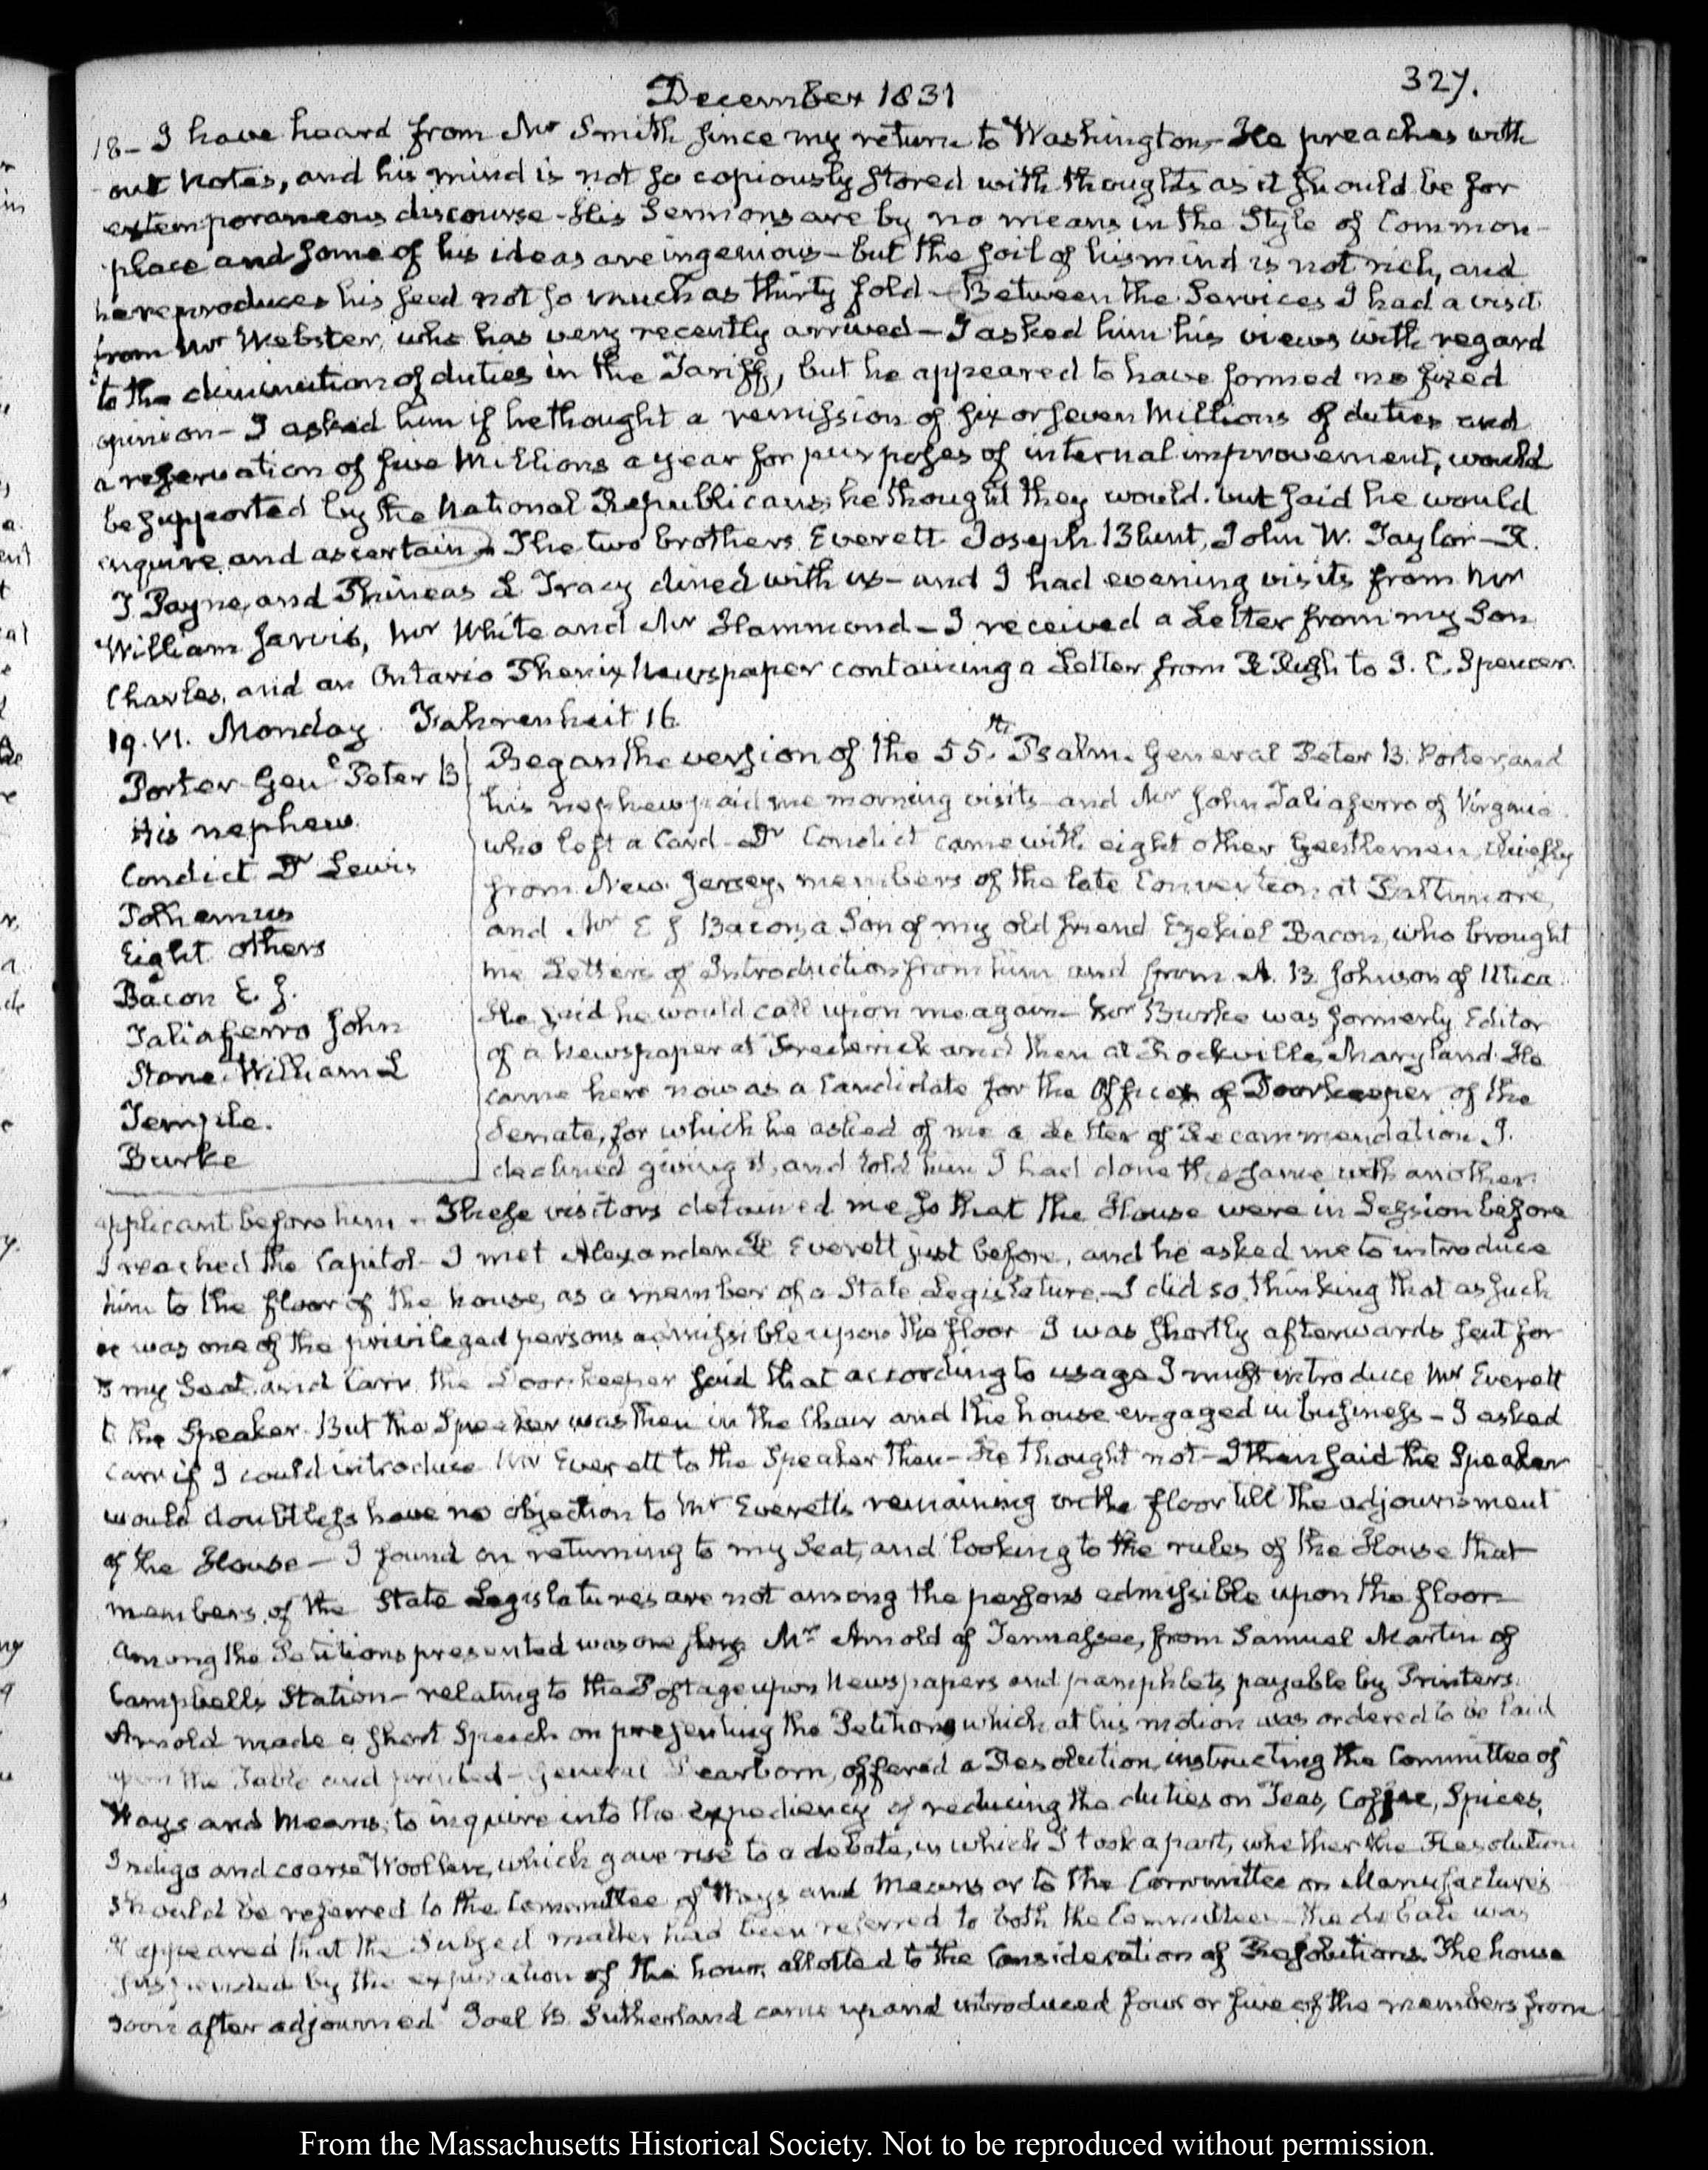 December 1831
327.
18- I have heard from Mr Smith since my return to Washington- He preaches with
out Notes, and his mind is not so copiously stored with thoughts as it should be for
extemporaneous discourse- His Sermons are by no means in the Style of Common-
place and some of his ideas are ingenious- but the soil of his mind is not rich, and
he reproduces his seed not so much as thirty fold- Between the Services I had a visit
from Mr Webster, who has very recently arrived- I asked him his views with regard
to the diminution of duties in the Tariff, but he appeared to have formed no fixed
opinion- I asked him if he thought a remission of six or seven Millions of duties and
a reservation of five Millions a year for purposes of internal improvement, would
be supported by the National Republicans; he thought they would. but said he would
enquire and ascertain- The two brothers Everett Joseph Blunt, John W. Taylor- R.
J Payne, and Phineas L Tracy dined with us- and I had evening visits from Mr
William Jarvis, Mr White and Mr Hammond- I received a Letter from my Son
Charles, and an Ontario Phenix Newspaper containing a Letter from R Rush to J. C. Spencer.
19. VI. Monday. Fahrenheit 16.
Porter Genl Peter B
His nephew.
Condict Dr Lewis
Polhemus
Eight others
Bacon E. J.
Taliaferro John
Stone William L
Temple.
Burke
Began the version of the 55th. Psalm. General Peter B. Porter, and
his nephew paid me morning visits and Mr John Taliaferro of Virginia
who left a Card- Dr Condict came with eight other Gentlemen, chiefly
from New Jersey, members of the late Convention at Baltimore,
and Mr E J Bacon, a Son of my old friend Ezekiel Bacon, who brought
me Letters of Introduction from him and from A. B Johnson of Utica.
He said he would call upon me again- Mr Burke was formerly Editor
of a Newspaper at Frederick and then at Rockville, Maryland. He
came here now as a Candidate for the Office of Doorkeeper of the
Senate, for which he asked of me a Letter of Recommendation. I
declined giving it, and told him I had done the same with another
applicant before him- These visitors detained me so that the House were in Session before
I reached the Capitol- I met Alexander H Everett just before, and he asked me to introduce
him to the floor of the house, as a member of a State Legislature- I did so, thinking that as such
he was one of the privileged persons admissible upon the floor- I was shortly afterwards sent for
to my Seat, and Carr the Doorkeeper said that according to usage I must introduce Mr Everett
to the Speaker. But the Speaker was then in the Chair and the house engaged in business- I asked
Carr if I could introduce Mr Everett to the Speaker then- He thought not- I then said the Speaker
would doubtless have no objection to Mr Everett's remaining on the floor till the adjournment
of the House- I found on returning to my Seat, and looking to the rules of the House that
members of the State Legislatures are not among the persons admissible upon the floor-
Among the Petitions presented was one by Mr Arnold of Tennessee, from Samuel Martin of
Campbells Station- relating to the Postage upon Newspapers and pamphlets payable by Printers.
Arnold made a short Speech on presenting the Petition, which at his motion was ordered to be laid
upon the Table and printed- General Dearborn, offered a Resolution, instructing the Committee of
Ways and Means, to inquire into the expediency of reducing the duties on Teas, Coffee, Spices,
Indigo and coarse Woollens, which gave rise to a debate, in which I took a part, whether the Resolution
should be referred to the Committee of Ways and Means or to the Committee on Manufactures
It appeared that the Subject matter had been referred to both the Committees- The debate was
suspended by the expiration of the hour allotted to the Consideration of Resolutions. The house
soon after adjourned Joel B. Sutherland came up and introduced four or five of the members from
From the Massachusetts Historical Society. Not to be reproduced without permission.